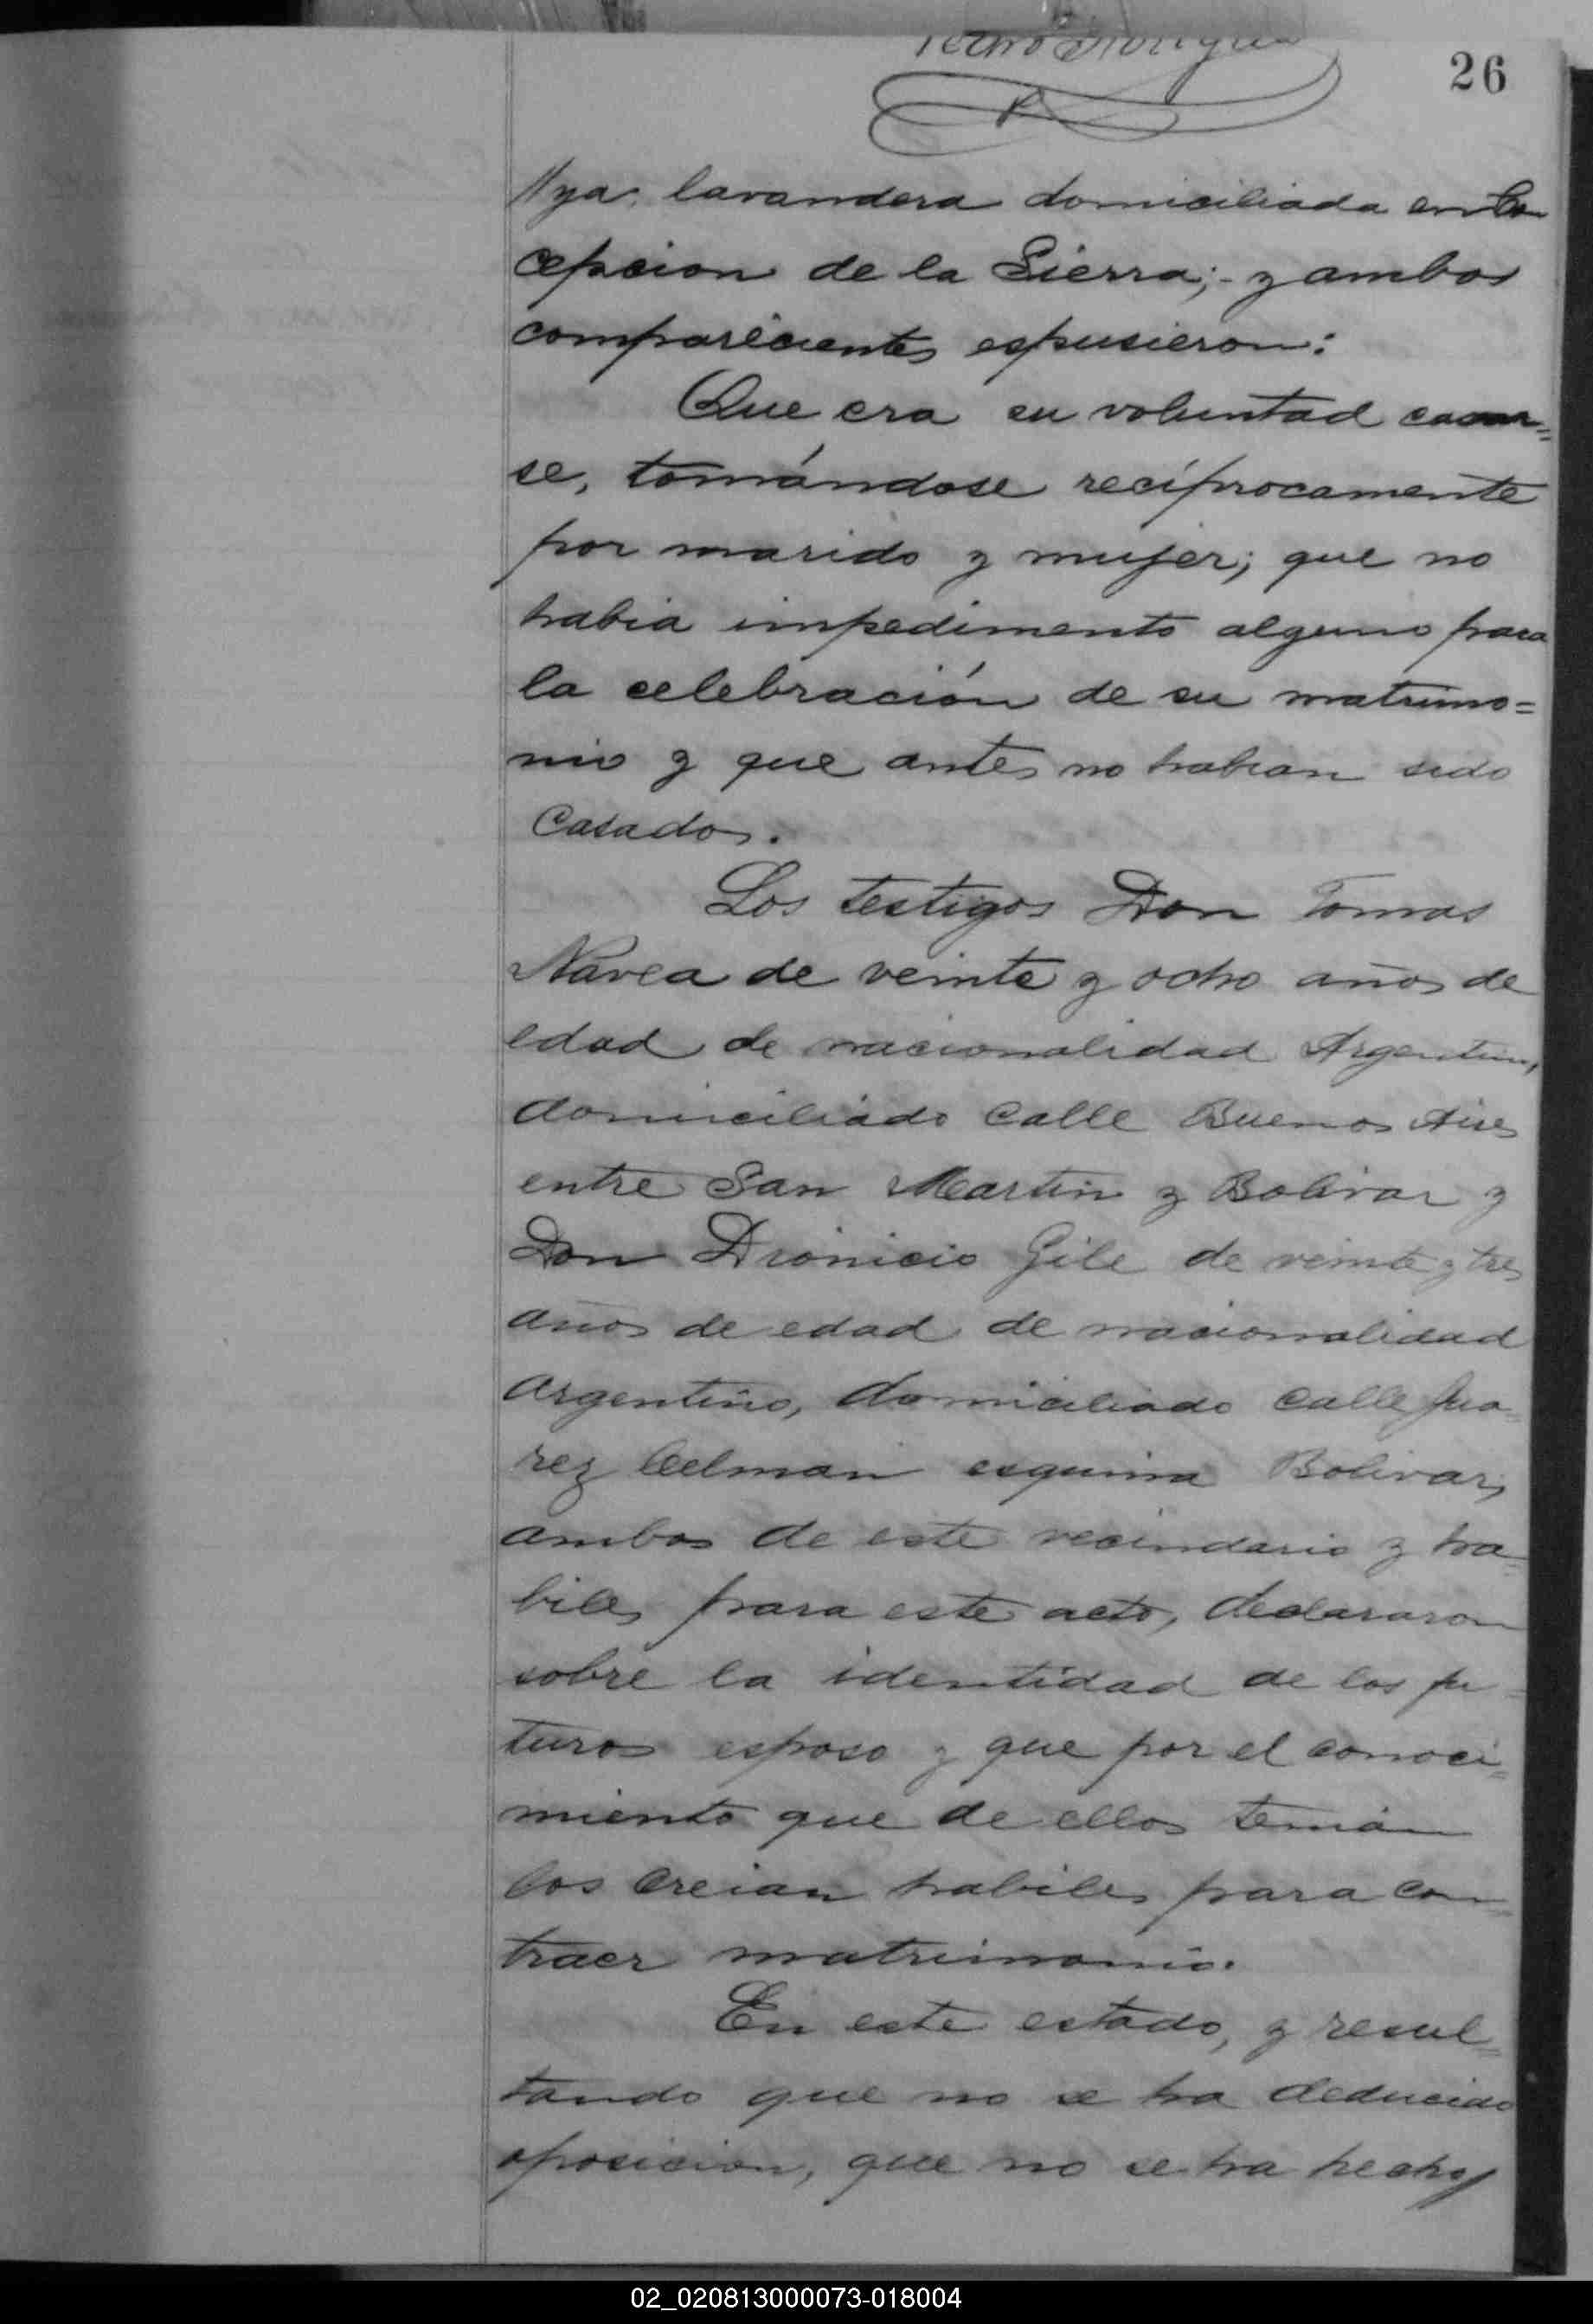 Pedro
26
//ya, lavandera domiciliada en Con
cepcion de la Sierra;- y ambos
comparecientes espusieron:
Que era su voluntad casar=
se, tomándose recíprocamente
por marido y mujer; que no
habia impedimento alguno para
la celebración de su matrimo=
nio y que antes no habian sido
Casados.
Los testigos Don Tomas
Navea de veinte y ocho años de
edad de nacionalidad Argentino,
domiciliado Calle Buenos Aires
entre San Martin y Bolivar y
Don Dionicio Gile de veinte y tres
años de edad de nacionalidad
Argentino, domiciliado Calle Jua=
rez Celman esquina Bolivar,
ambos de este vecindario y ha=
biles para este acto, declararon
sobre la identidad de los fu=
turos esposo y que por el conoci=
miento que de ellos tenian
los Creian habiles para con=
traer matrimonio.
En este estado, y resul=
tando que no se ha deducido
oposicion, que no se ha hecho/
02_020813000073-018004